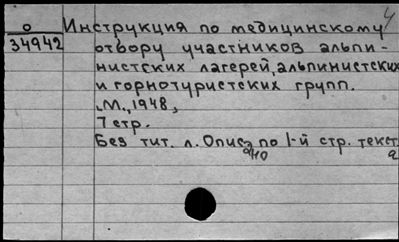 4
о Инструкция по медицинскому
34942 отбору участников альпи-
нистских лагерей, альпинистских
и горнотуристских групп.
М., 1948,
7 стр.
Без тит. л. Описано по 1-й стр. текста